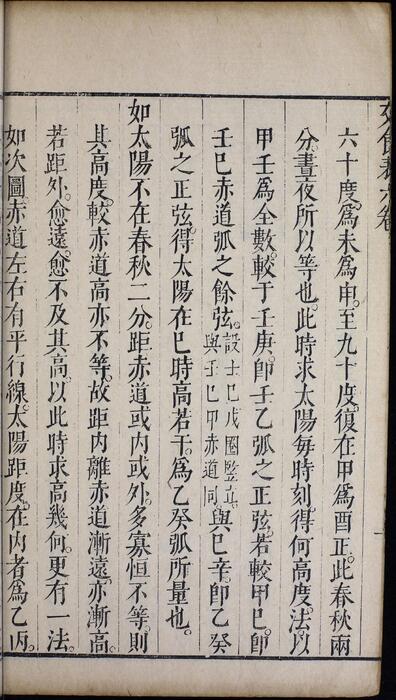 交食表六卷
六十度。爲未爲申。至九十度。復在甲爲酉正。此春秋兩
分。晝夜所以等也。此時求太陽每時刻。得何高度。法。以
甲壬爲全數。較于壬庚。卽壬乙弧之正弦。若較甲巳。卽
壬巳赤道弧之餘弦。設士巳戊圈竪立。與壬巳甲赤道同。與巳辛。卽乙癸
弧之正弦。得太陽在巳時高若干。爲乙癸弧所量也。
如太陽不在春秋二分。距赤道或內或外。多寡恒不等。則
其高度。較赤道高亦不等。故距內離赤道漸遠。亦漸高。
若距外。愈遠。愈不及其高。以此時求高幾何。更有一法。
如次圖。赤道左右有平行線。太陽距度。在內者爲乙丙。